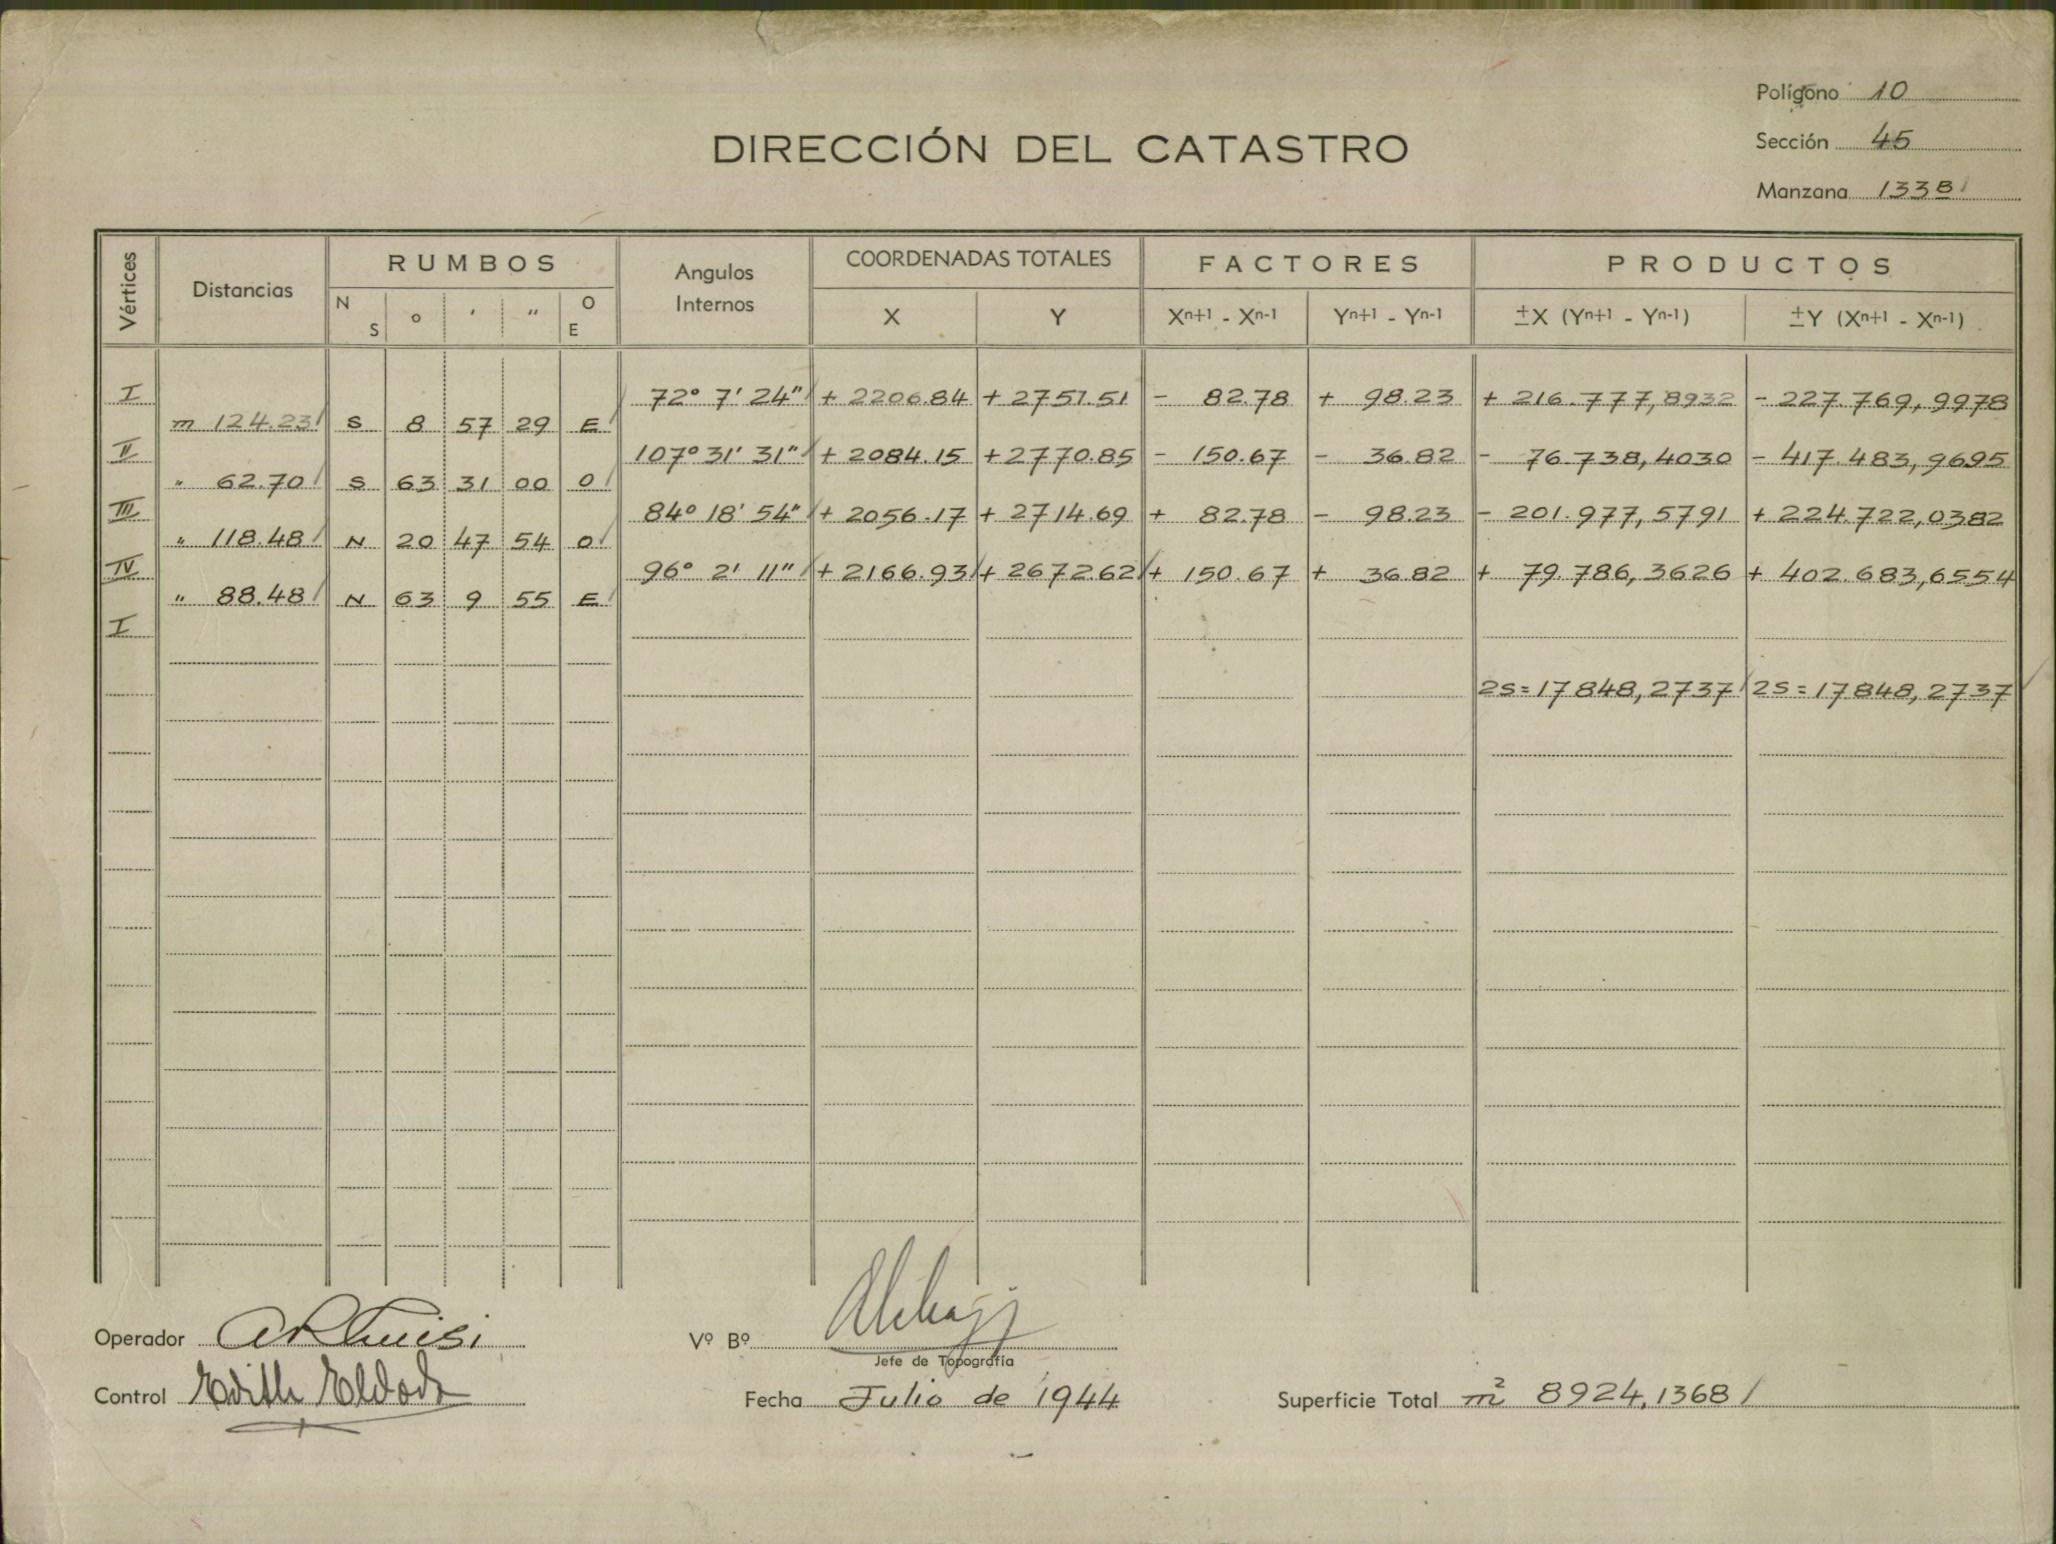 Polígono 10
DIRECCIÓN DEL CATASTRO
Sección 45
Manzana 133B
Vértices Distancias RUMBOS Angulos Internos COORDENADAS TOTALES FACTORES PRODUCTOS
N S ° ' " O E X Y Xn+1 - Xn-1 Yn+1 - Yn-1 ±X (Yn+1 - Yn-1) ±Y (Xn+1 - Xn-1)
I 72° 7' 24" + 2206.84 + 2751.51 - 82.78 + 98.23 + 216.777,8932 - 227.769,9978
m 124.23 S 8 57 29 E
II 107° 31' 31" + 2084.15 + 2770.85 - 150.67 - 36.82 - 76.738,4030 - 417.483,9695
" 62.70 S 63 31 00 O
III 84° 18' 54" + 2056.17 + 2714.69 + 82.78 - 98.23 - 201.977,5791 + 224.722,0382
" 118.48 N 20 47 54 O
IV 96° 2' 11" + 2166.93 + 2672.62 + 150.67 + 36.82 + 79.786,3626 + 402.683,6554
" 88.48 N 63 9 55 E
I
2S = 17848,2737 2S = 17848,2737
Operador
Vº Bº
Jefe de Topografía
Control Edith
Fecha Julio de 1944
Superficie Total m² 8924,1368